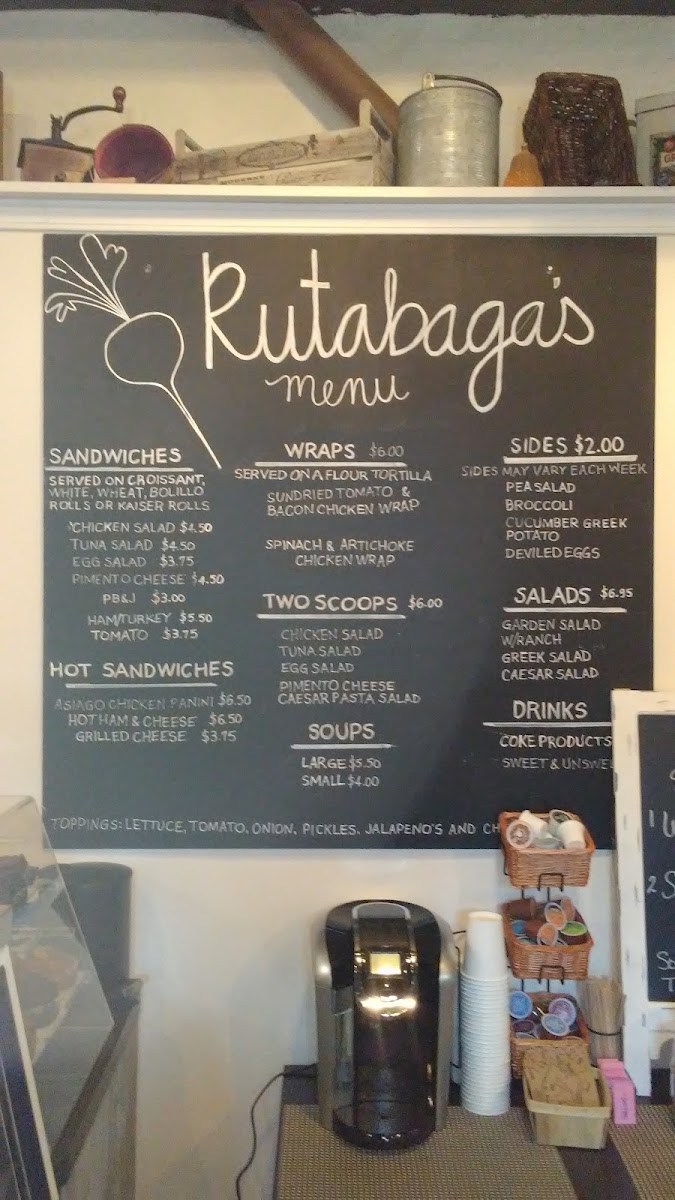 Rutabaga's
menu
SANDWICHES
SERVED ON CROISSANT,
WHITE, WHEAT, BOLILLO
ROLLS OR KAISER ROLLS
CHICKEN SALAD $4.50
TUNA SALAD $4.50
EGG SALAD $3.75
PIMENTO CHEESE $4.50
PB&J $3.00
HAM/TURKEY $5.50
TOMATO $3.75
HOT SANDWICHES
ASIAGO CHICKEN PANINI $6.50
HOT HAM & CHEESE $6.50
GRILLED CHEESE $3.75
WRAPS $6.00
SERVED ON A FLOUR TORTILLA
SUNDRIED TOMATO &
BACON CHICKEN WRAP
SPINACH & ARTICHOKE
CHICKEN WRAP
TWO SCOOPS $6.00
CHICKEN SALAD
TUNA SALAD
EGG SALAD
PIMENTO CHEESE
CAESAR PASTA SALAD
SOUPS
LARGE $5.50
SMALL $4.00
SIDES $2.00
SIDES MAY VARY EACH WEEK
PEA SALAD
BROCCOLI
CUCUMBER GREEK
POTATO
DEVILED EGGS
SALADS $6.95
GARDEN SALAD
W/RANCH
GREEK SALAD
CAESAR SALAD
DRINKS
COKE PRODUCTS
SWEET & UNSWE
TOPPINGS: LETTUCE, TOMATO, ONION, PICKLES, JALAPENO'S AND CH
1
2 S